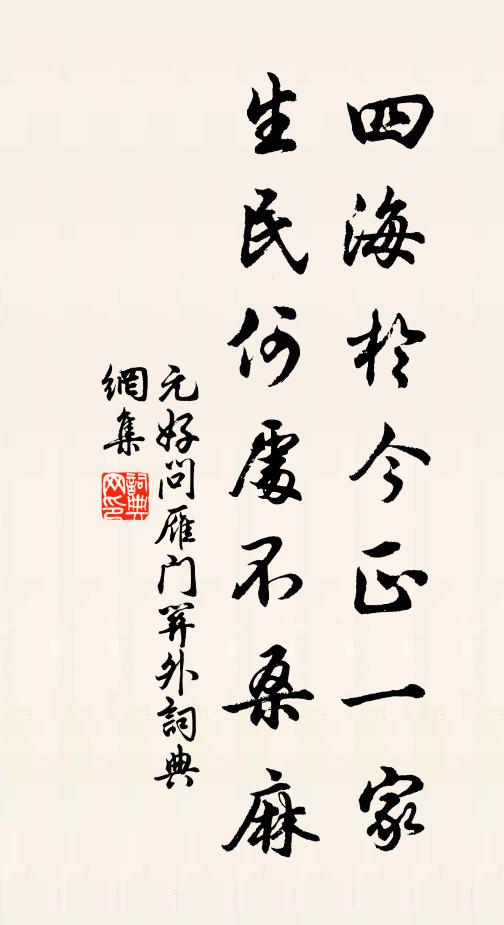 四海於今正一家
生民何處不桑麻
元好问雁门関外詞典
網集
詞典
网印